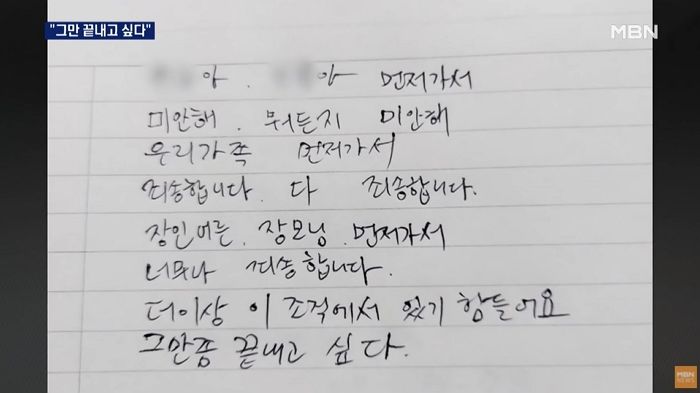 "그만 끝내고 싶다"
MBN
아. 아 먼저가서
미안해. 뭐든지 미안해
우리가족 먼저가서
죄송합니다. 다 죄송합니다.
장인어른. 장모님. 먼저가서
너무나 죄송합니다.
더이상 이 조직에서 있기 힘들어요
그만좀 끝내고 싶다.
MBN
NEWS